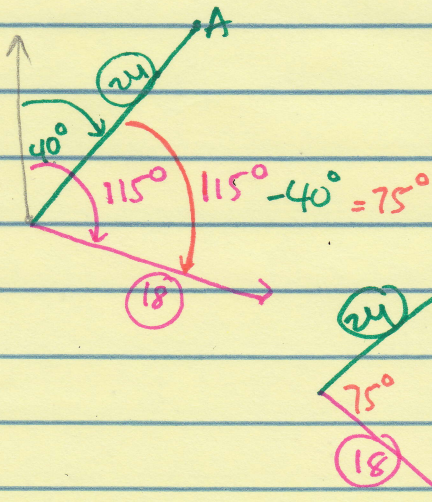 A
24
40°
115° 115° -40° = 75°
18
24
75°
18